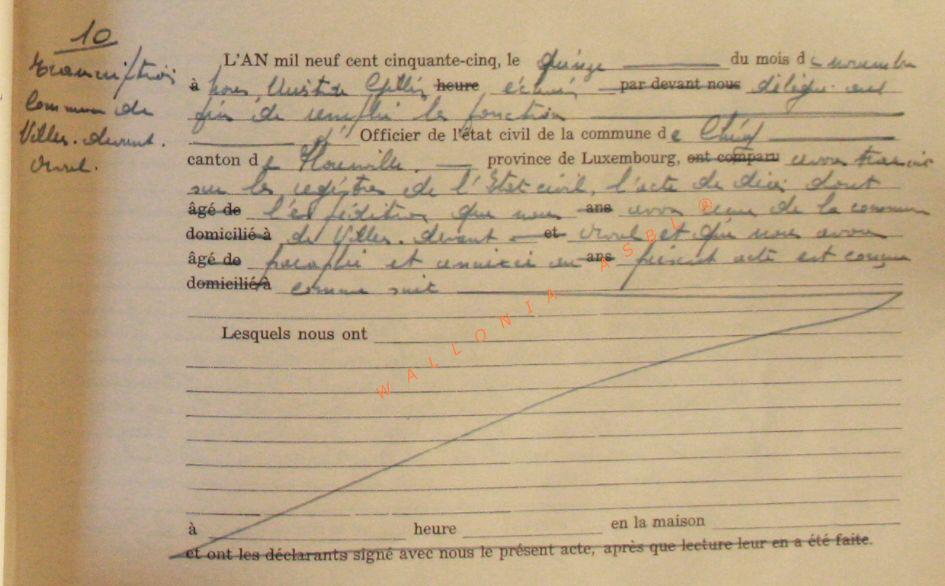 10
Transcription
Commune de
Villers-devant-
Orval.
L'AN mil neuf cent cinquante-cinq, le quinze du mois de novembre
à nous, Gillis, heure échevin par devant nous délégué aux
fin de remplir les fonction
d' Officier de l'état civil de la commune de Chiny
canton de Florenville. province de Luxembourg, ont comparu avons transcrit
sur les registres de l'Etat civil, l'acte de décès dont
âgé de l'expédition que nous ans avons reçue de la commune
domicilié à de Villers-devant et Orval et que nous avons
âgé de paraphé et annexé au ans présent acte est conçue
domicilié à comme suit
Lesquels nous ont
à heure en la maison
et ont les déclarants signé avec nous le présent acte, après que lecture leur en a été faite.
WALLONIA ASBL ®